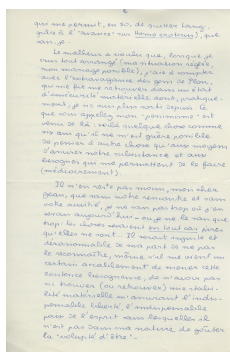 qui me permit, en 50, de quitter Lang.
grâce à l'"avance" sur Homo eroticus), que
sais-je.
Le malheur a voulu que, lorsque je
eus tout arrangé (ma situation réglée,
mon mariage possible), j'aie à compter
avec l'extravagance des gens de Plon,
qui me fit me retrouver dans un état
d'insécurité matérielle dont, pratique-
ment, je ne suis plus sorti depuis. Le
que vous appelez mon "pessimisme" est
venu de là : voilà quelque chose comme
six ans qu'il ne m'est guère possible
de penser à autre chose qu'aux moyens
d'assurer notre subsistance et aux
besognes qui me permettent de le faire
(médiocrement).
Il n'en reste pas moins, mon cher
Jean, que sans notre rencontre et sans
votre amitié, je ne sais pas trop où j'en
serais aujourd'hui - ou je ne le sais que
trop : les choses seraient en tout cas pires
qu'elles ne sont. Il serait injuste et
déraisonnable de ma part de ne pas
le reconnaître, même s'il me vient un
certain accablement de mener cette
existence besogneuse, de n'avoir pas
su trouver (ou retrouver) une stabi-
lité matérielle m'assurant l'indis-
pensable liberté, l'indispensable
paix de l'esprit sans lesquelles il
n'est pas dans ma nature de goûter
la "volupté d'être".